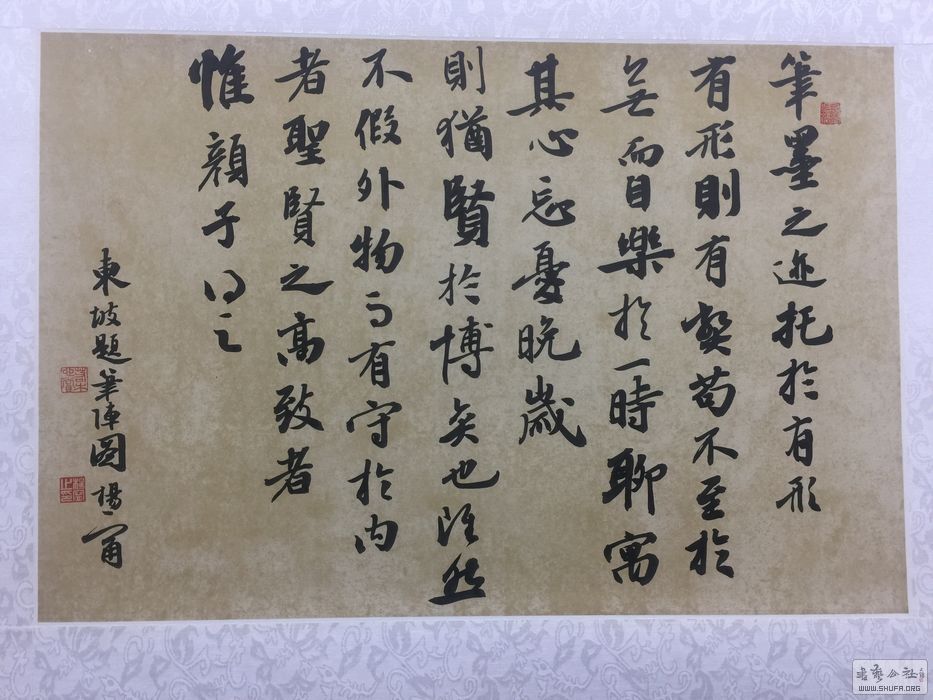 筆墨之迹托於有形
有形則有弊苟不至於
無而自樂於一時聊寓
其心忘憂晚歲
則猶賢於博弈也雖然
不假外物而有守於内
者聖賢之高致者
惟顏子得之
東坡題筆陣圖 楊一甯
WWW.SHUFA.ORG